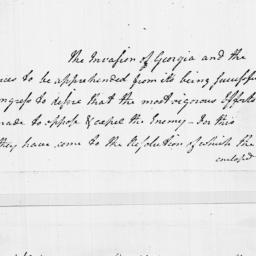 The Invasion of Georgia and the
nces to be apprehended from its being successful
ongress to desire that the most vigorous Efforts
made to oppose & expel the Enemy - For this
they have come to the Resolution of which the
enclosed